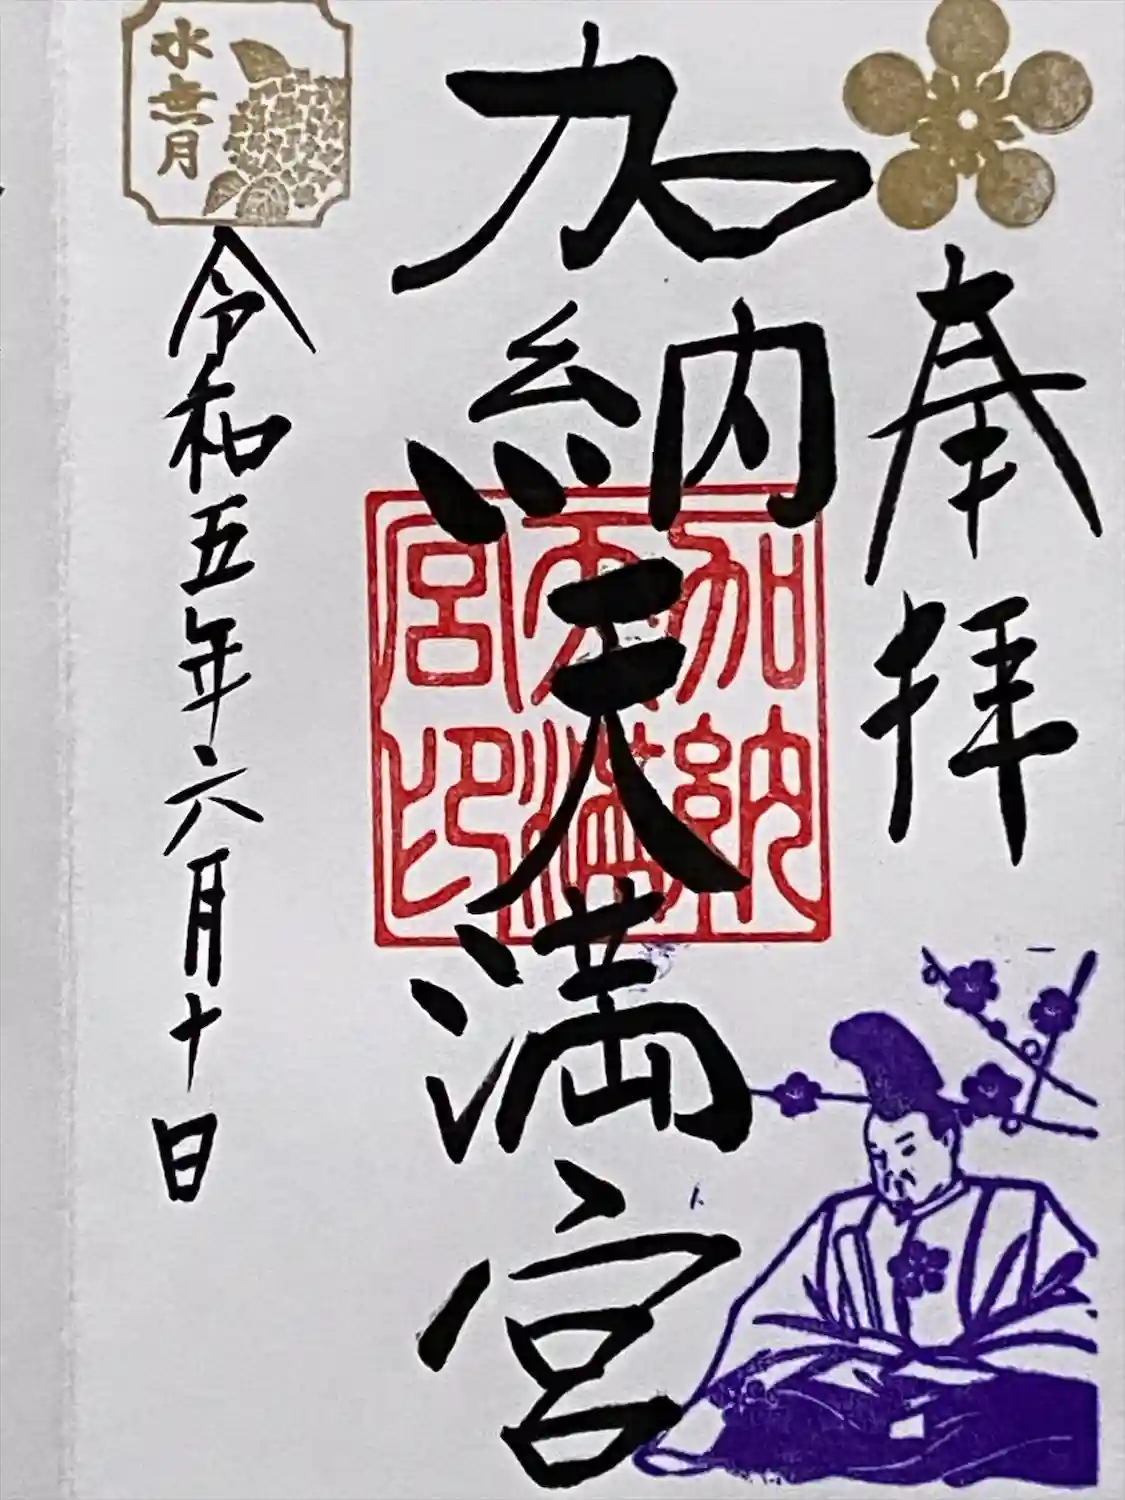 奉拝
加納天満宮
加納天満宮印
水無月
令和五年六月十日